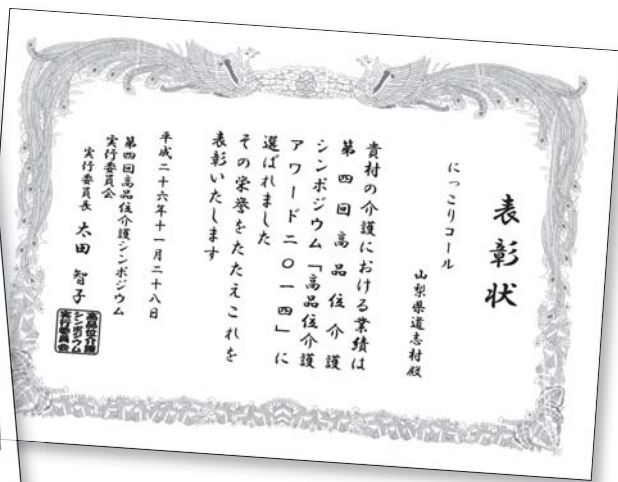 表彰状
山梨県道志村殿
にっこりコール
貴村の介護における業績は
第四回高品位介護
シンポジウム「高品位介護
アワード二〇一四」に
選ばれました
その栄誉をたたえこれを
表彰いたします
平成二十六年十一月二十八日
第四回高品位介護シンポジウム
実行委員会
実行委員長 太田智子
高品位介護
シンポジウム
実行委員会